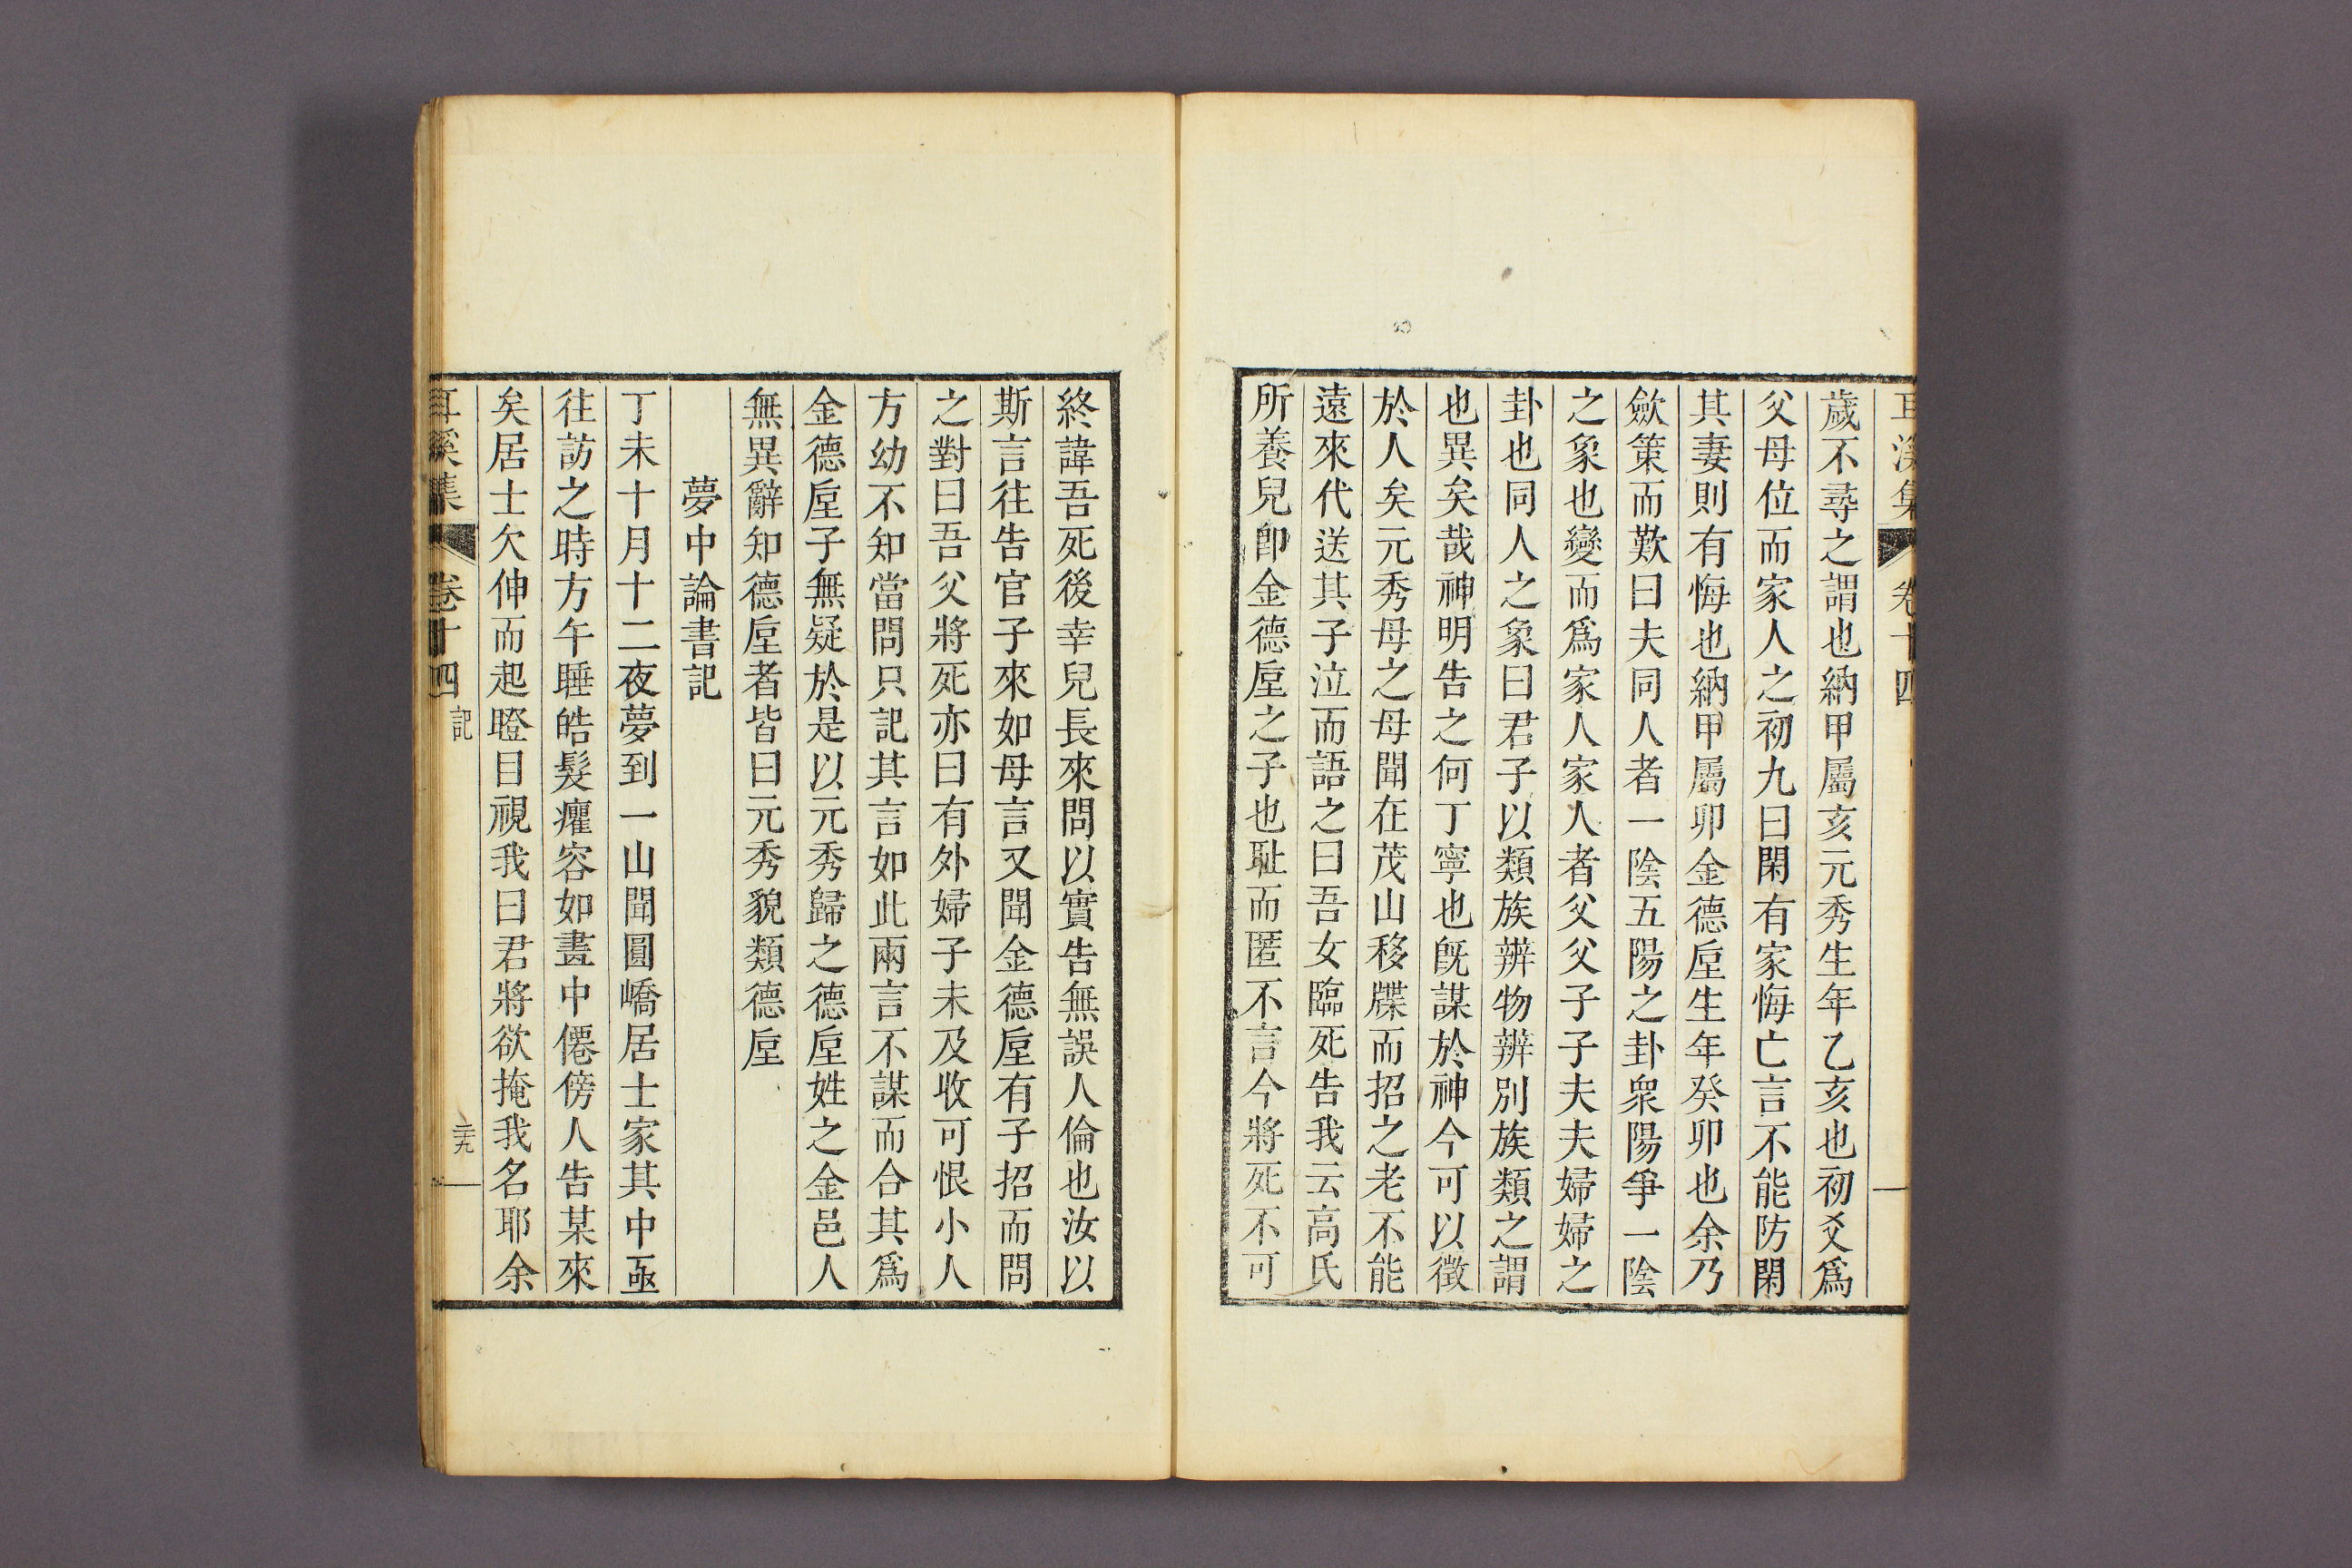 耳溪集 卷十四
歲不尋之謂也納甲屬亥元秀生年乙亥也初爻爲
父母位而家人之初九曰閑有家悔亡言不能防閑
其妻則有悔也納甲屬卯金德垕生年癸卯也余乃
斂策而歎曰夫同人者一陰五陽之卦衆陽爭一陰
之象也變而爲家人家人者父父子子夫夫婦婦之
卦也同人之象曰君子以類族辨物辨別族類之謂
也異矣哉神明告之何丁寧也旣謀於神今可以徵
於人矣元秀母之母聞在茂山移牒而招之老不能
遠來代送其子泣而語之曰吾女臨死告我云高氏
所養兒卽金德垕之子也耻而匿不言今將死不可
終諱吾死後幸兒長來問以實告無誤人倫也汝以
斯言往告官子來如母言又聞金德垕有子招而問
之對曰吾父將死亦曰有外婦子未及收可恨小人
方幼不知當問只記其言如此兩言不謀而合其爲
金德垕子無疑於是以元秀歸之德垕姓之金邑人
無異辭知德垕者皆曰元秀貌類德垕
夢中論書記
丁未十月十二夜夢到一山聞圓嶠居士家其中亟
往訪之時方午睡皓髮癯容如畫中僊傍人告某來
矣居士欠伸而起瞪目視我曰君將欲掩我名耶余
耳溪集 卷十四 記 二十九